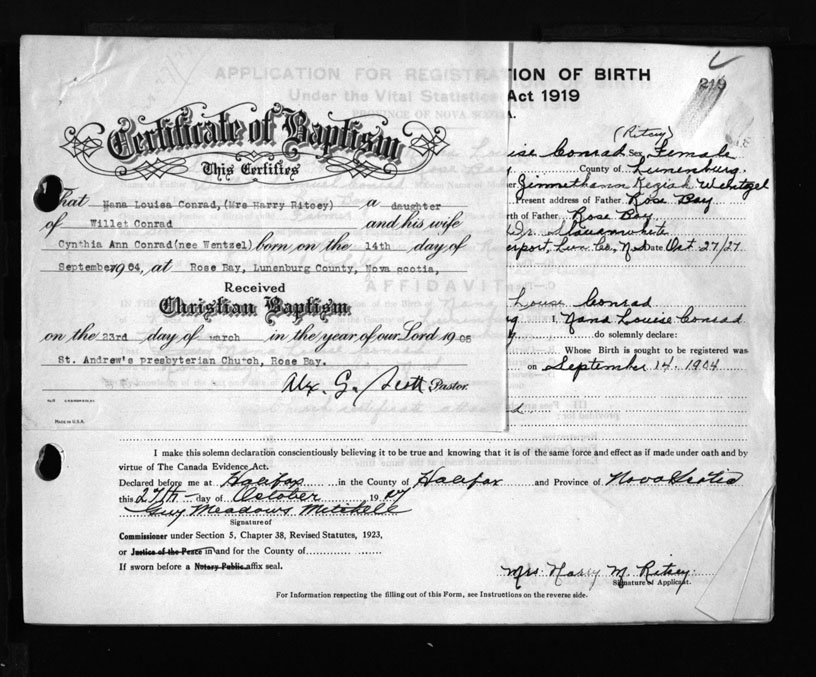 APPLICATION FOR REGISTRATION OF BIRTH
Under the Vital Statistics Act 1919
PROVINCE OF NOVA SCOTIA.
219
Certificate of Baptism
This Certifies
That Nana Louisa Conrad,(Mrs Harry Ritcey) a daughter
of Willet Conrad and his wife
Cynthia Ann Conrad(nee Wentzel) born on the 14th day of
September 1904, at Rose Bay, Lunenburg County, Nova scotia,
Received
Christian Baptism
on the 23rd day of March in the year of our Lord 1905
St. Andrew's presbyterian Church, Rose Bay.
Alx. G. Scott Pastor.
MADE IN U.S.A.
(Ritcey)
ise Conrad Sex Female
County of Lunenburg
Present address of Father Rose Bay
rth of Father Rose Bay
Lun. Co., N.S Date Oct 27/27
AFFIDAVIT
Louise Conrad
I, Nana Louise Conrad
do solemnly declare:
Whose Birth is sought to be registered was
on September 14. 1904
I make this solemn declaration conscientiously believing it to be true and knowing that it is of the same force and effect as if made under oath and by
virtue of The Canada Evidence Act.
Declared before me at Halifax in the County of Halifax and Province of Nova Scotia
this 27th day of October 19
Guy Meadows Mitchell
Signature of
Commissioner under Section 5, Chapter 38, Revised Statutes, 1923,
or Justice of the Peace in and for the County of
If sworn before a Notary Public affix seal.
Mrs. Harry M. Ritcey
Signature of Applicant.
For Information respecting the filling out of this Form, see Instructions on the reverse side.